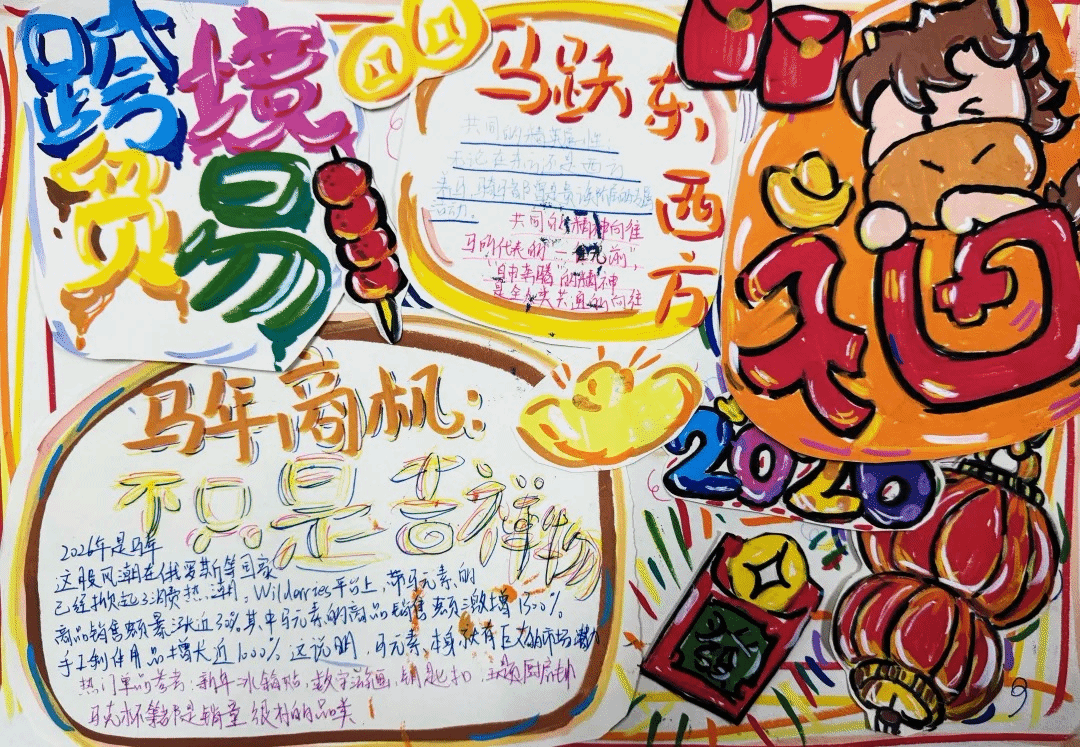 跨境
贸易
马跃东西方
共同的
无论在东方还是西方
活动。
共同的精神向往
马所代表的"一往无前",
自由奔腾的精神
是全人类共通的向往
福
马年商机:
不只是吉祥物
2026年是马年
这股风潮在俄罗斯等国家
已经掀起了消费热潮。Wildberries平台上,带马元素的
商品销售额暴涨近30%其中马元素的商品销售额激增1300%
手工制作用品增长近1000%这说明,马元素本身就有巨大的市场潜力
热门单品参考:新年冰箱贴,数字油画,钥匙扣,主题厨房
马克杯等都是销量很利的品类
2026